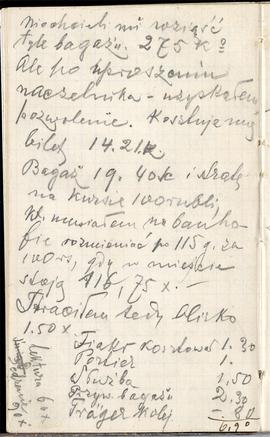 Niechcieli mi wziąść
tyle bagażu. 275 K o
Ale po uproszeniu
naczelnika - uzyskałem
pozwolenie. Kosztuje mię
bilet 14.21 K.
Bagaż 19.40 K i straty
na kursie 100 rubli,
kt. musiałem na banho-
fie rozmieniać po 115 g. za
100 rs, gdy w mieście
stoją 116,75 x.
Straciłem tedy blisko
1.50 x
Fiakr kosztował 1.30
Portier 1.
Służba 1,50
Przyw. bagażu 2.30
Träger kolej - 80
6,90
Lektura 60 x